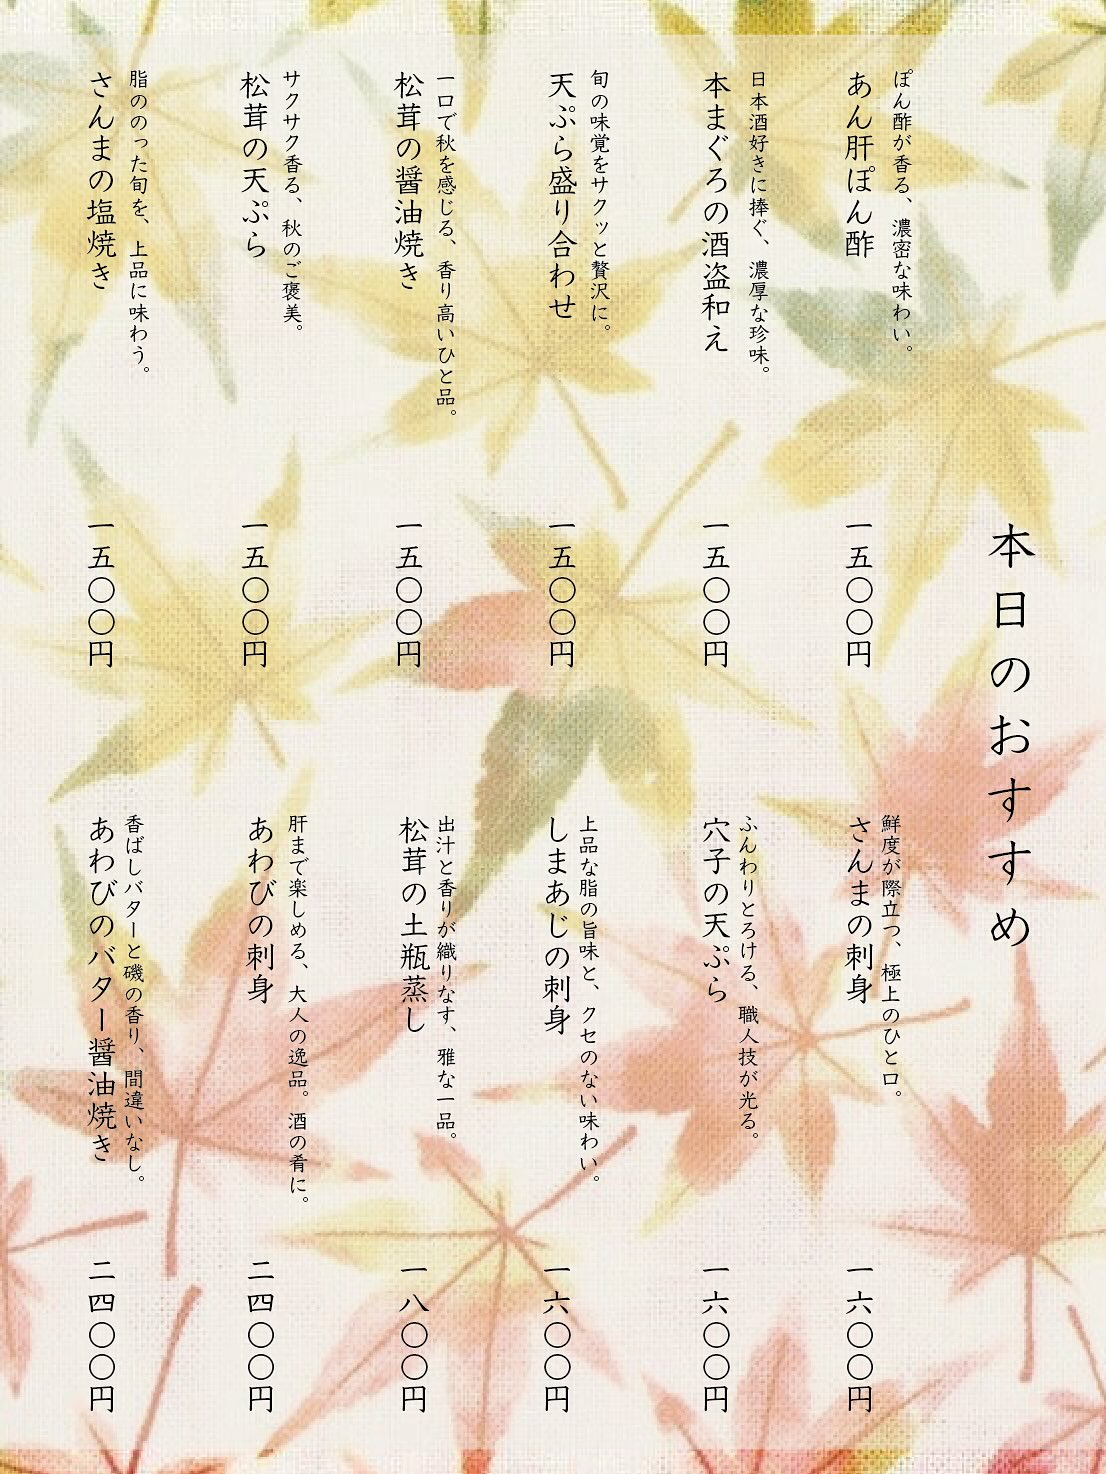 本日のおすすめ
ぽん酢が香る、濃密な味わい。
あん肝ぽん酢
一五〇〇円
日本酒好きに捧ぐ、濃厚な珍味。
本まぐろの酒盗和え
一五〇〇円
旬の味覚をサクッと贅沢に。
天ぷら盛り合わせ
一五〇〇円
一口で秋を感じる、香り高いひと品。
松茸の醤油焼き
一五〇〇円
サクサク香る、秋のご褒美。
松茸の天ぷら
一五〇〇円
脂ののった旬を、上品に味わう。
さんまの塩焼き
一五〇〇円
鮮度が際立つ、極上のひと口。
さんまの刺身
一六〇〇円
ふんわりとろける、職人技が光る。
穴子の天ぷら
一六〇〇円
上品な脂の旨味と、クセのない味わい。
しまあじの刺身
一六〇〇円
出汁と香りが織りなす、雅な一品。
松茸の土瓶蒸し
一八〇〇円
肝まで楽しめる、大人の逸品。酒の肴に。
あわびの刺身
二四〇〇円
香ばしバターと磯の香り、間違いなし。
あわびのバター醤油焼き
二四〇〇円